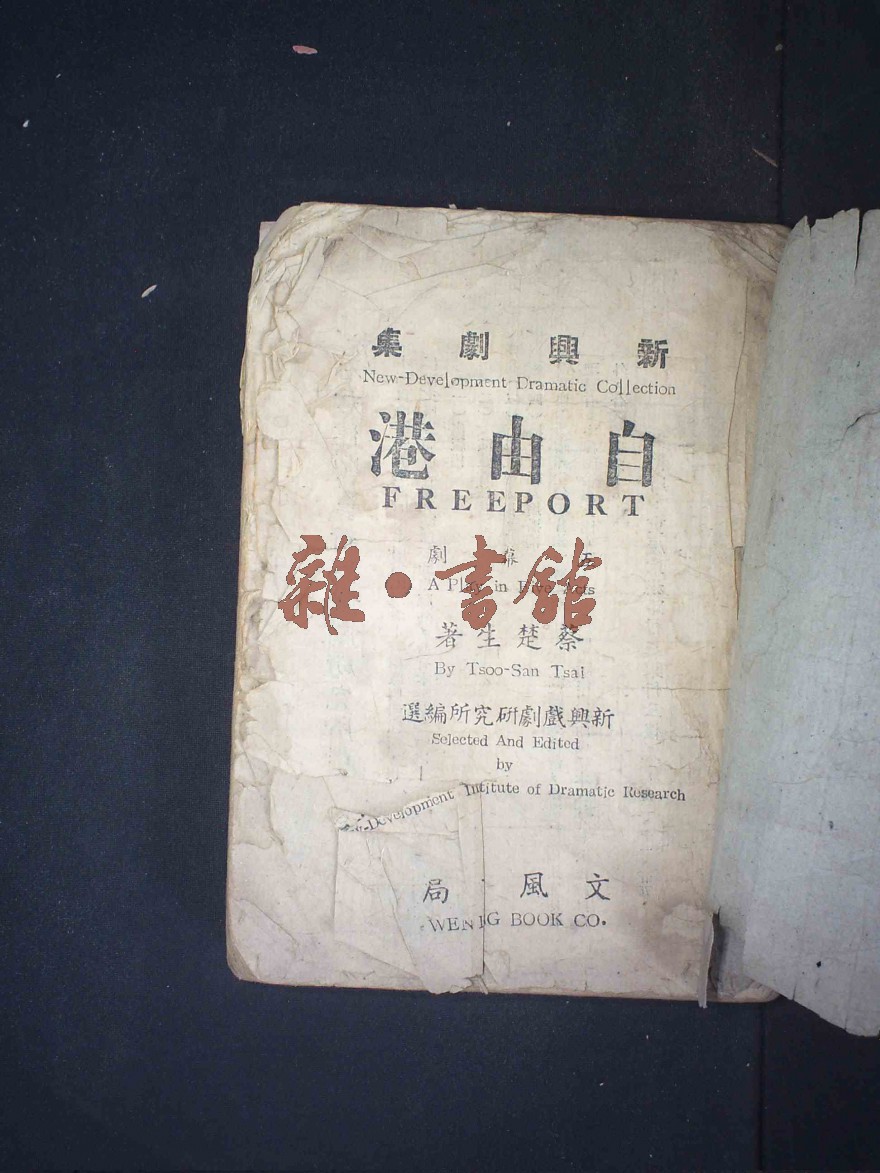 新興劇集
New-Development Dramatic Collection
自由港
FREEPORT
五幕劇
A Play in Five Acts
雜·書館
蔡楚生著
By Tsoo-San Tsai
新興戲劇研究所編選
Selected And Edited
by
-Development Intitute of Dramatic Research
文風 局
WEN G BOOK CO.